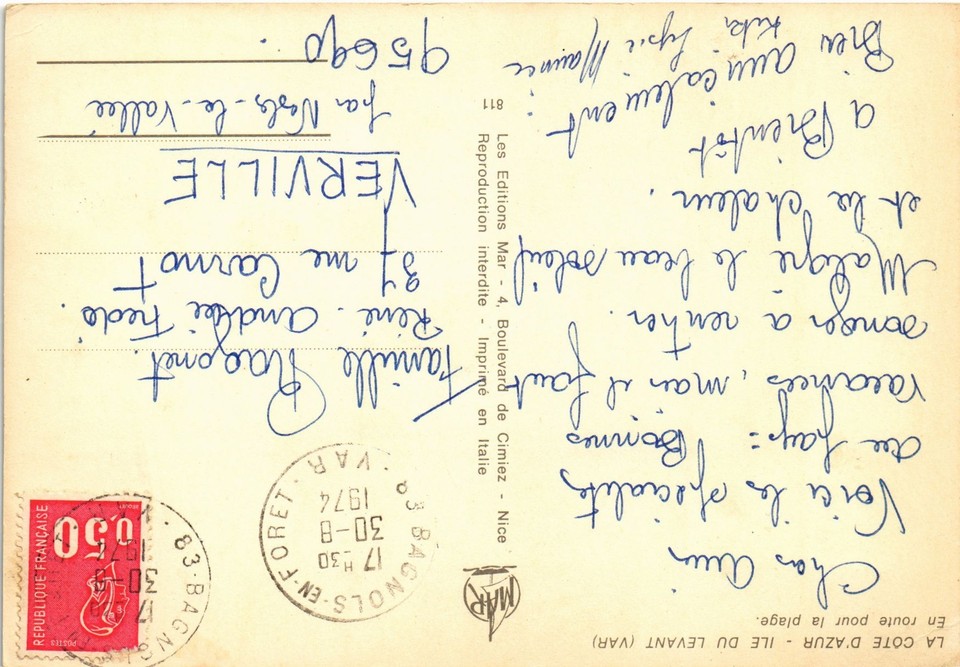 LA CÔTE D'AZUR - ILE DU LEVANT (VAR)
En route pour la plage.
Chers amis
Voici les spécialités
du pays = Bonnes
vacances, mais il faut
songer à rentrer.
Malgré le beau soleil
et la chaleur.
a Bientôt
amicalement
Bien
Maurice
MAR
Les Editions Mar - 4, Boulevard de Cimiez - Nice
Reproduction interdite - Imprimé en Italie
811
83 BAGNOLS-EN-FORET · VAR
17 H 30
30-8
1974
REPUBLIQUE FRANÇAISE
0,50
POSTES
83 - BAGNOLS
17
30-8
1974
Famille Ragonet
René. Andrée Fredo.
37 rue Carnot
VERVILLE
par Nesls-la-Vallée
95690